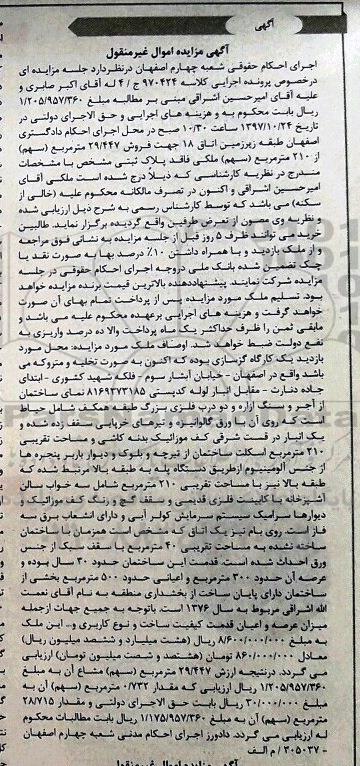 آگهی
آگهی مزایده اموال غیرمنقول
اجرای احکام حقوقی شعبه چهارم اصفهان درنظردارد جلسه مزایده ای
درخصوص پرونده اجرایی کلاسه ۹۷۰۴۲۴ ج / ۴ له آقای اکبر صابری و
علیه آقای امیرحسین اشراقی مبنی بر مطالبه مبلغ ۱/۲۰۵/۹۵۷/۳۶۰
ریال بابت محکوم به و هزینه های اجرایی و حق الاجرای دولتی در
تاریخ ۱۳۹۷/۱۰/۲۴ ساعت ۱۰/۳۰ صبح در محل اجرای احکام دادگستری
اصفهان طبقه زیرزمین اتاق ۱۸ جهت فروش ۲۹/۴۴۷ مترمربع (سهم)
از ۲۱۰ مترمربع (سهم) ملکی فاقد پلاک ثبتی مشخص با مشخصات
مندرج در نظریه کارشناسی که ذیلاً درج شده است ملکی آقای
امیرحسین اشراقی و اکنون در تصرف مالکانه محکوم علیه (خالی از
سکنه) می باشد که توسط کارشناس رسمی به شرح ذیل ارزیابی شده
و نظریه وی مصون از تعرض طرفین واقع گردیده برگزار نماید. طالبین
خرید می توانند ظرف ۵ روز قبل از جلسه مزایده به نشانی فوق مراجعه
و از ملک بازدید و با همراه داشتن ۱۰٪ درصد بها به صورت نقد یا
چک تضمین شده بانک ملی دروجه اجرای احکام حقوقی در جلسه
مزایده شرکت نمایند. پیشنهاددهنده بالاترین قیمت برنده مزایده خواهد
بود. تسلیم ملک مورد مزایده پس از پرداخت تمام بهای آن صورت
خواهد گرفت و هزینه های اجرایی برعهده محکوم علیه می باشد.
مابقی ثمن را ظرف حداکثر یک ماه پرداخت والا ده درصد واریزی به
نفع دولت ضبط خواهد شد. اوصاف ملک مورد مزایده: محل مورد
بازدید یک کارگاه گزسازی بوده که اکنون به صورت تخلیه و متروکه می
باشد واقع در اصفهان - خیابان آبشار سوم - فلکه شهید کشوری - ابتدای
جاده دنارت - مقابل انبار لوله کدپستی ۸۱۶۹۳۷۳۱۸۵ نمای ساختمان
از آجر و سنگ ازاره و دو درب فلزی بزرگ طبقه همکف شامل حیاط
است که روی آن با ورق گالوانیزه و تیرهای خرپایی سقف زده شده و
یک انبار در قسمت شرقی کف موزائیک بدنه کاشی و مساحت تقریبی
۲۱۰ مترمربع اسکلت ساختمان از تیرچه و بلوک و دیوار باربر پنجره ها
از جنس آلومینیوم ازطریق دستگاه پله به طبقه بالا مرتبط شده که
طبقه بالا نیز با مساحت تقریبی ۲۱۰ مترمربع شامل سه خواب سالن
آشپزخانه با کابینت فلزی قدیمی و سقف گچ و رنگ کف موزائیک و
دیوارها سرامیک سیستم سرمایش کولر آبی و دارای انشعاب برق سه
فاز است. روی بام نیز یک اتاق که مشخص است همزمان با ساختمان
ساخته نشده به مساحت تقریبی ۴۰ مترمربع با سقف سبک از جنس
ورق احداث شده است. قدمت این ساختمان حدود ۳۰ سال بوده و
عرصه آن حدود ۳۰۰ مترمربع و اعیانی حدود ۵۰۰ مترمربع بخشی از
ساختمان دارای پایان ساخت از بخشداری منطقه به نام آقای نعمت
الله اشراقی مربوط به سال ۱۳۷۶ است. باتوجه به جمیع جهات ازجمله
میزان عرصه و اعیان قدمت کیفیت ساخت و نوع کاربری و... این ملک
به مبلغ ۸/۶۰۰/۰۰۰/۰۰۰ ریال (هشت میلیارد و ششصد میلیون ریال)
معادل ۸۶۰/۰۰۰/۰۰۰ تومان (هشتصد و شصت میلیون تومان) ارزیابی
می گردد. درنتیجه ارزش ۲۹/۴۴۷ مترمربع (سهم) مشاع آن به مبلغ
۱/۲۰۵/۹۵۷/۳۶۰ ریال ارزیابی که مقدار ۰/۷۳۲ مترمربع (سهم) آن به
مبلغ ۳۰/۰۰۰/۰۰۰ ریال بابت حق الاجرای دولتی و مقدار ۲۸/۷۱۵
مترمربع (سهم) آن به مبلغ ۱/۱۷۵/۹۵۷/۳۶۰ ریال بابت مطالبات محکوم
له ارزیابی می گردد. دادورز اجرای احکام مدنی شعبه چهارم اصفهان
- ۳۰۵۰۳۷ / م الف
آگهی مزایده اموال غیرمنقول